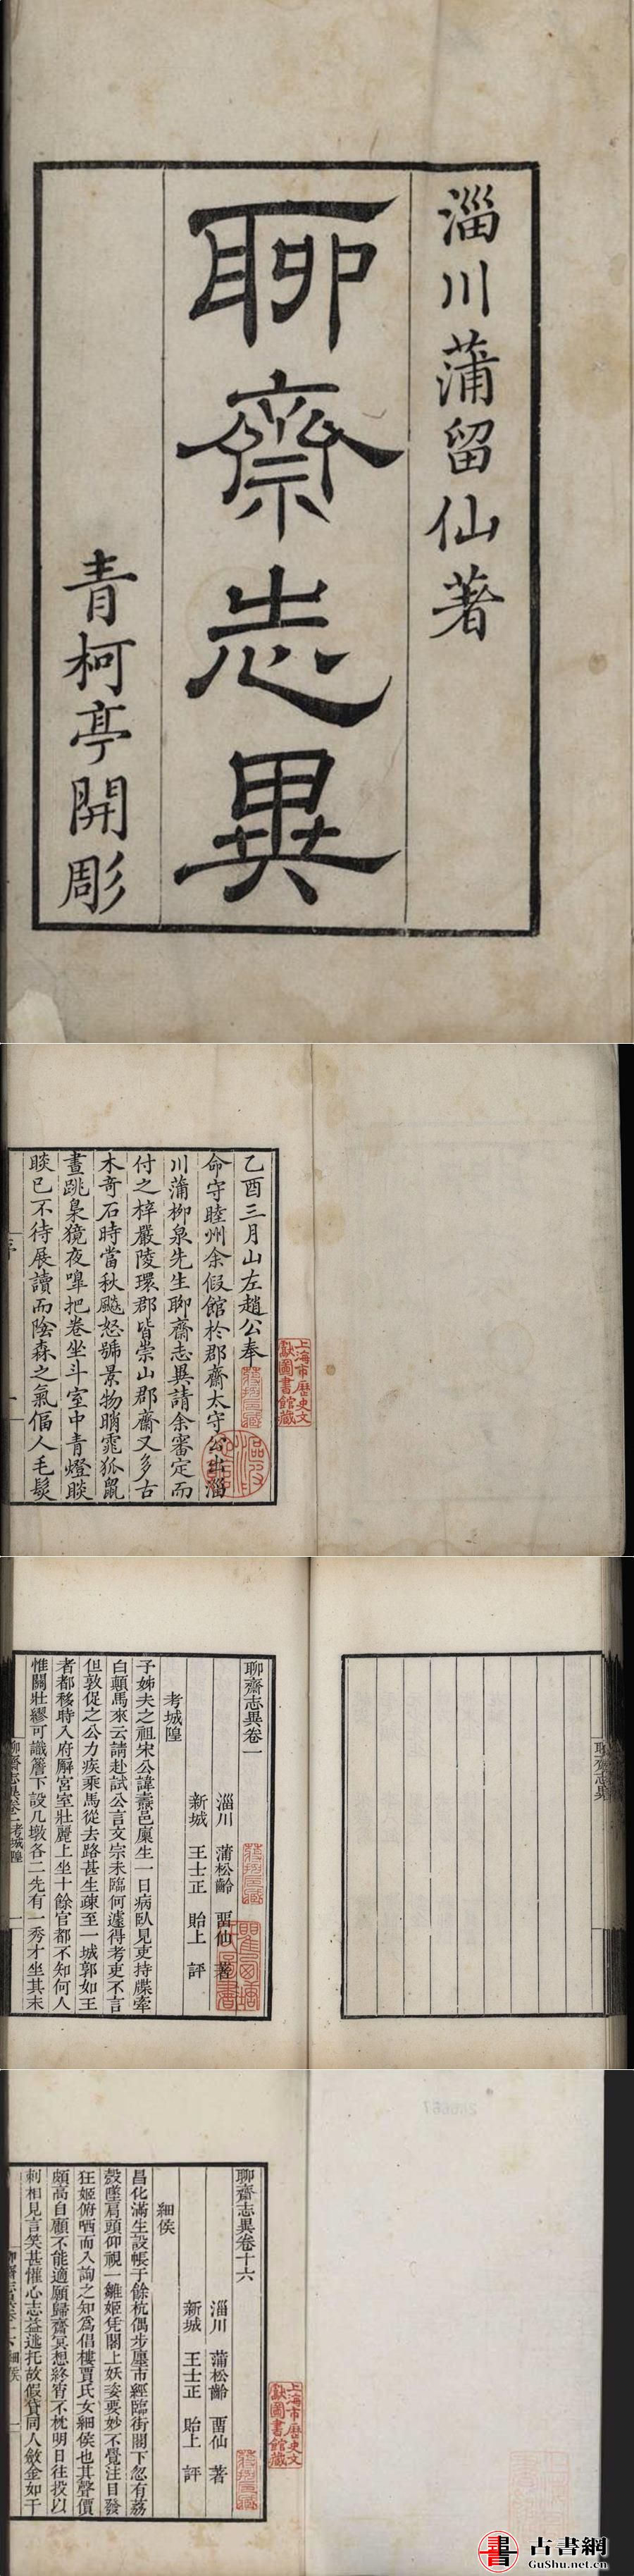 淄川蒲留仙著
聊齋志異
青柯亭開彫
乙酉三月山左趙公奉
命守睦州余假館於郡齋太守公出淄
川蒲柳泉先生聊齋志異請余審定而
付之梓嚴陵環郡皆崇山郡齋又多古
木奇石時當秋飈怒號景物睄窕狐鼠
晝跳梟獍夜嘷把卷坐斗室中青燈睒
睒已不待展讀而陰森之氣偪人毛髮
上海市歷史文
獻圖書館藏
聊齋志異卷一
淄川 蒲松齡 畱仙 著
新城 王士正 貽上 評
考城隍
予姊夫之祖宋公諱燾邑廩生一日病臥見吏持牒牽
白顛馬來云請赴試公言文宗未臨何遽得考吏不言
但敦促之公力疾乘馬從去路甚生疎至一城郭如王
者都移時入府廨宮室壯麗上坐十餘官都不知何人
惟關壯繆可識簷下設几墩各二先有一秀才坐其末
聊齋志異卷一 考城隍 一
聊齋志異
聊齋志異卷十六
淄川 蒲松齡 畱仙 著
新城 王士正 貽上 評
細侯
昌化滿生設帳于餘杭偶步廛市經臨街閣下忽有荔
殼墜肩頭仰視一雛姬凭閣上妖姿要妙不覺注目發
狂姬俯哂而入詢之知爲倡樓賈氏女細侯也其聲價
頗高自顧不能適願歸齋冥想終宵不枕明日往投以
刺相見言笑甚懽心志益迷托故假貸同人斂金如干
聊齋志異卷十六 細侯 一
上海市歷史文
獻圖書館藏
書 古書網
GuShu.net.cn